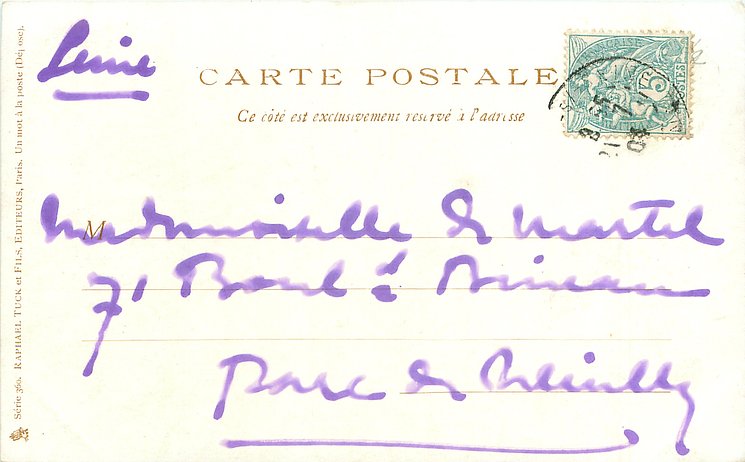 Seine
CARTE POSTALE
Ce côté est exclusivement reservé à l'adresse
M
Mademoiselle de Martel
71 Boul d Bineau
Parc de Neuilly
Série 360. RAPHAEL TUCK et FILS, EDITEURS, Paris. Un mot à la poste (Déposé).
5
POSTES